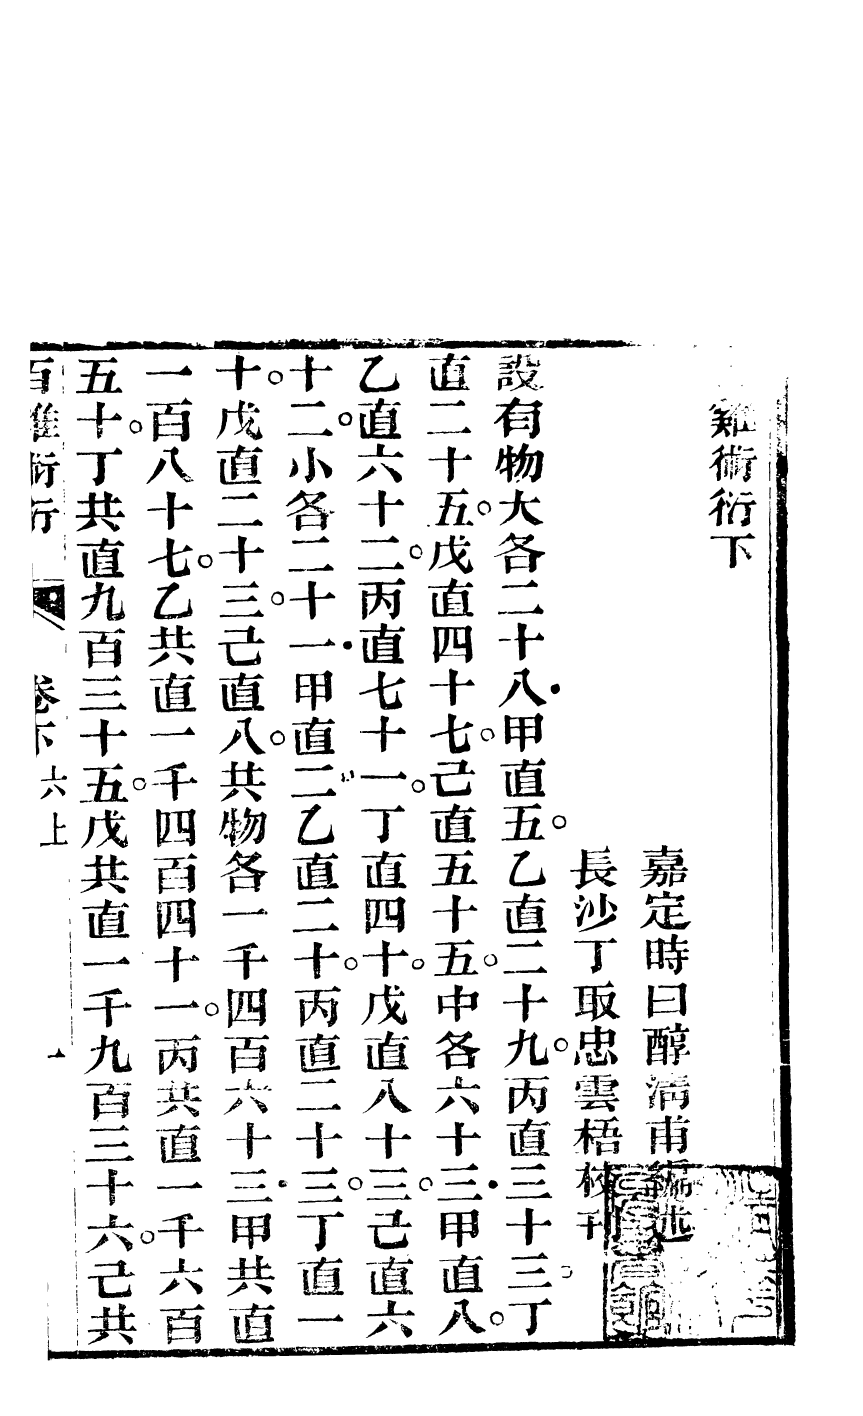 雞術衍下
嘉定時曰醇淸甫編述
長沙丁取忠雲梧校刊
設有物大各二十八甲直五。乙直二十九。丙直三十三。丁
直二十五。戊直四十七。己直五十五。中各六十三甲直八。
乙直六十二。丙直七十一。丁直四十。戊直八十三。己直六
十二。小各二十一甲直二乙直二十。丙直二十三。丁直一
十。戊直二十三。己直八。共物各一千四百六十三甲共直
一百八十七。乙共直一千四百四十一。丙共直一千六百
五十。丁共直九百三十五。戊共直一千九百三十六。己共
百雞術衍
卷下
六上